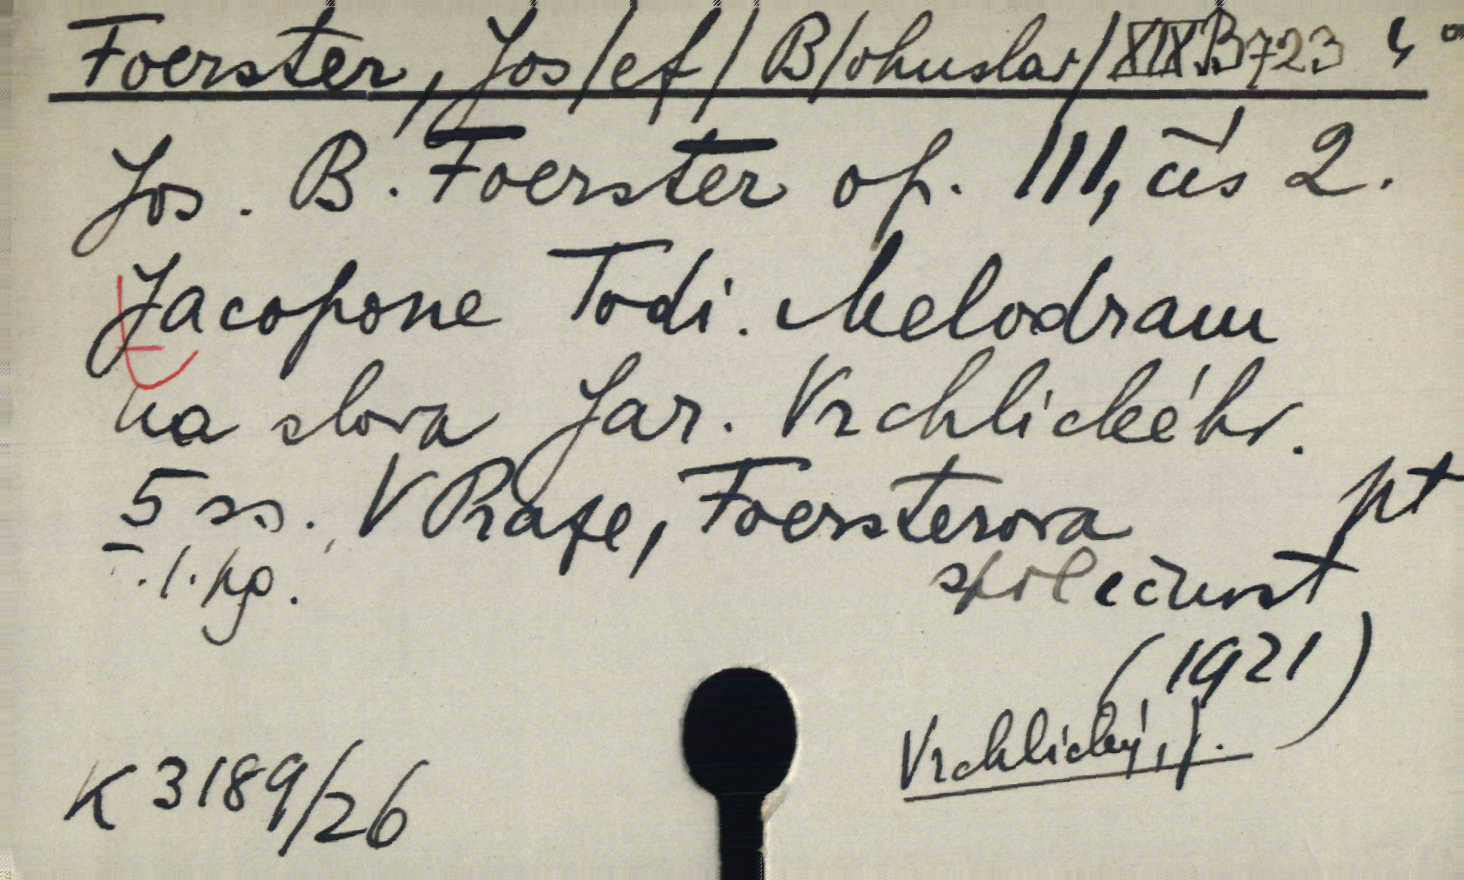 Foerster, Jos/ef/ B/ohuslav/ XIX B 723 4°
Jos. B. Foerster op. 111, čís 2.
Jacopone Todi. Melodram
na slova Jar. Vrchlického.
5 ss. V Praze, Foersterova
společnost
pt
(1921)
Vrchlický, J.
K 3189/26